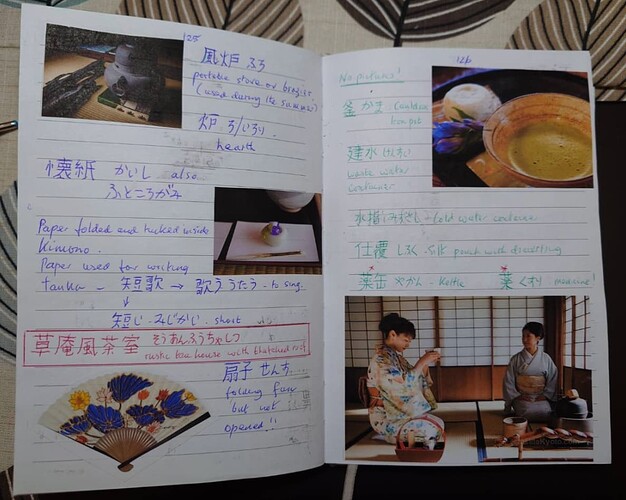 125
風炉 ふろ
portable stove or brazier
(used during the summer)
炉 ろ/いろり
hearth
懐紙 かいし also
ふところがみ
Paper folded and tucked inside
kimono.
Paper used for writing
tanka - 短歌 → 歌う うたう - to sing.
↓
短じ - みじかい - short
草庵風茶室 そうあんふうちゃしつ
rustic tea house with thatched roof
扇子 せんす
folding fan
but not
opened!!
126
No pictures!
釜 かま Cauldron
iron pot
建水 けんすい
waste water
container
水指 みずさし - cold water container
仕覆 しふく pouch with drawstring
薬缶 やかん - Kettle
薬 くすり medicine!